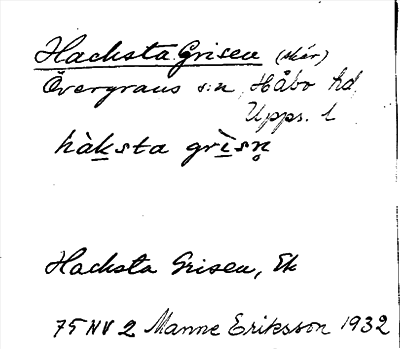 Hacksta Grisen (skär)
Övergrans s:n, Håbo hd
Upps. l
hàk̲sta grì̲sn̥
Hacksta Grisen, Ek
75 NV 2 Manne Eriksson 1932